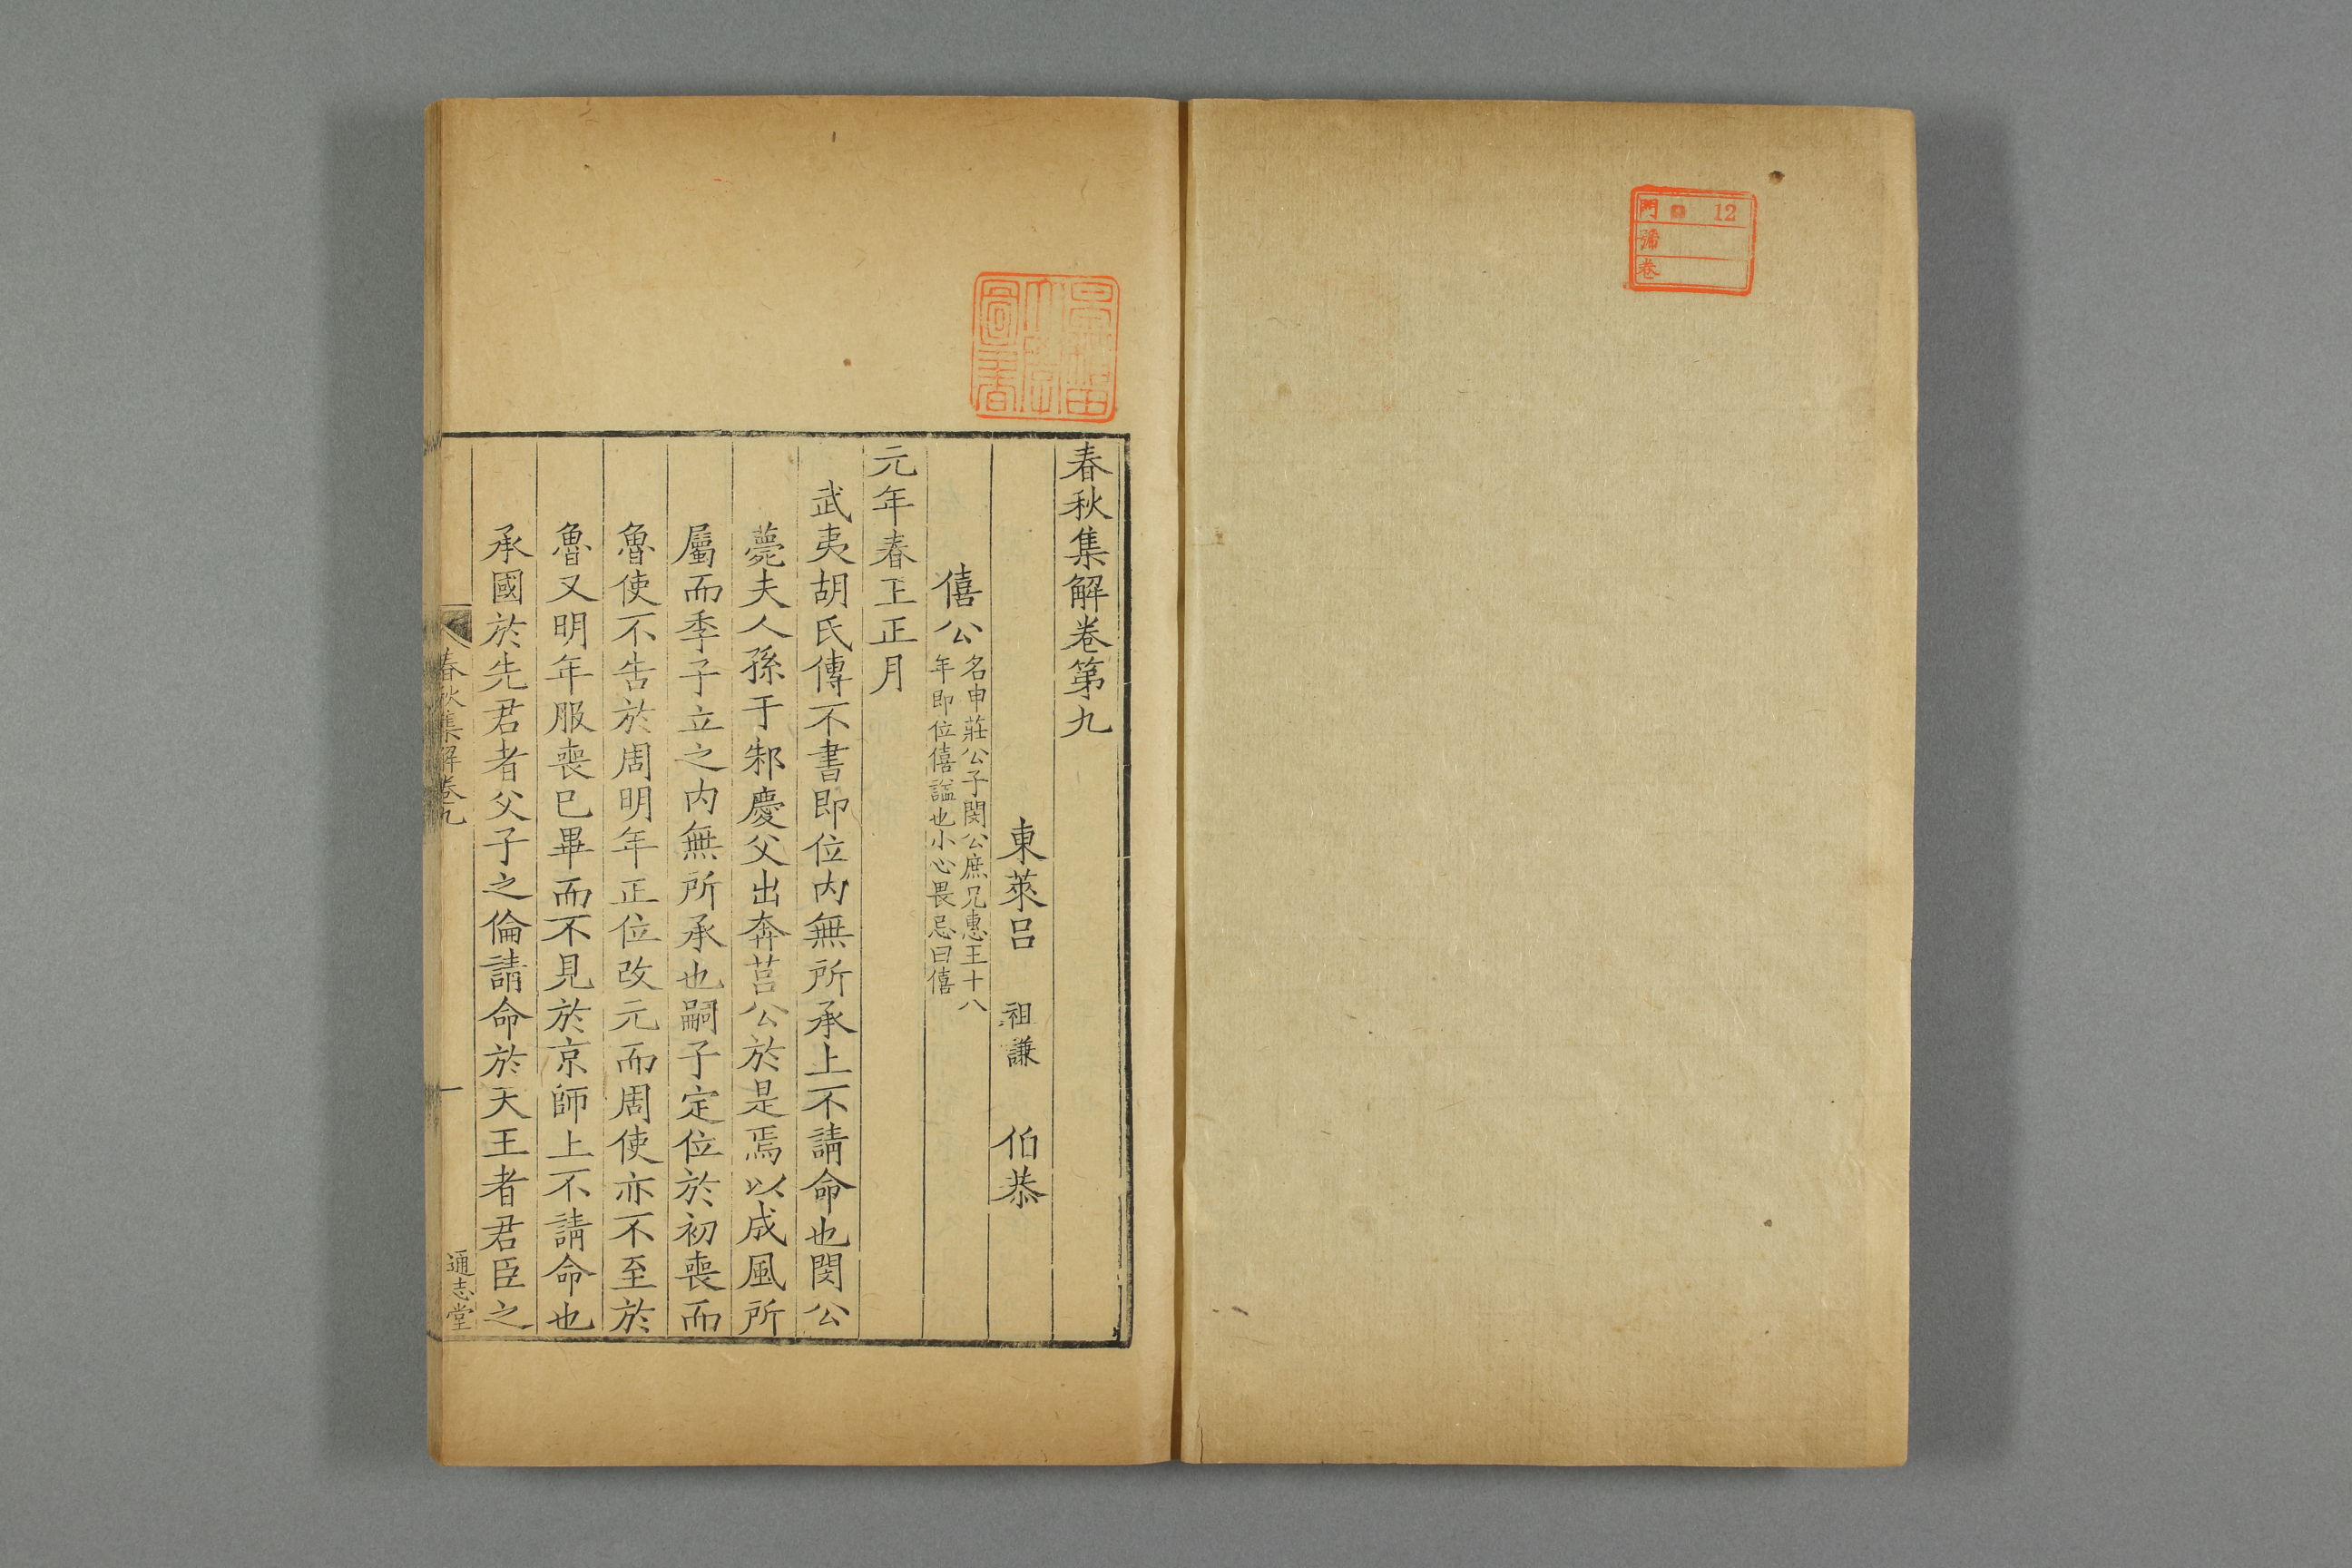 門 12
號
卷
春秋集解卷第九
東萊呂 祖謙 伯恭
僖公 名申莊公子閔公庶兄惠王十八
年即位僖謚也小心畏忌曰僖
元年春王正月
武夷胡氏傳不書即位内無所承上不請命也閔公
薨夫人孫于邾慶父出奔莒公於是焉以成風所
屬而季子立之内無所承也嗣子定位於初喪而
魯使不告於周明年正位改元而周使亦不至於
魯又明年服喪已畢而不見於京師上不請命也
承國於先君者父子之倫請命於天王者君臣之
春秋集解卷九
一
通志堂